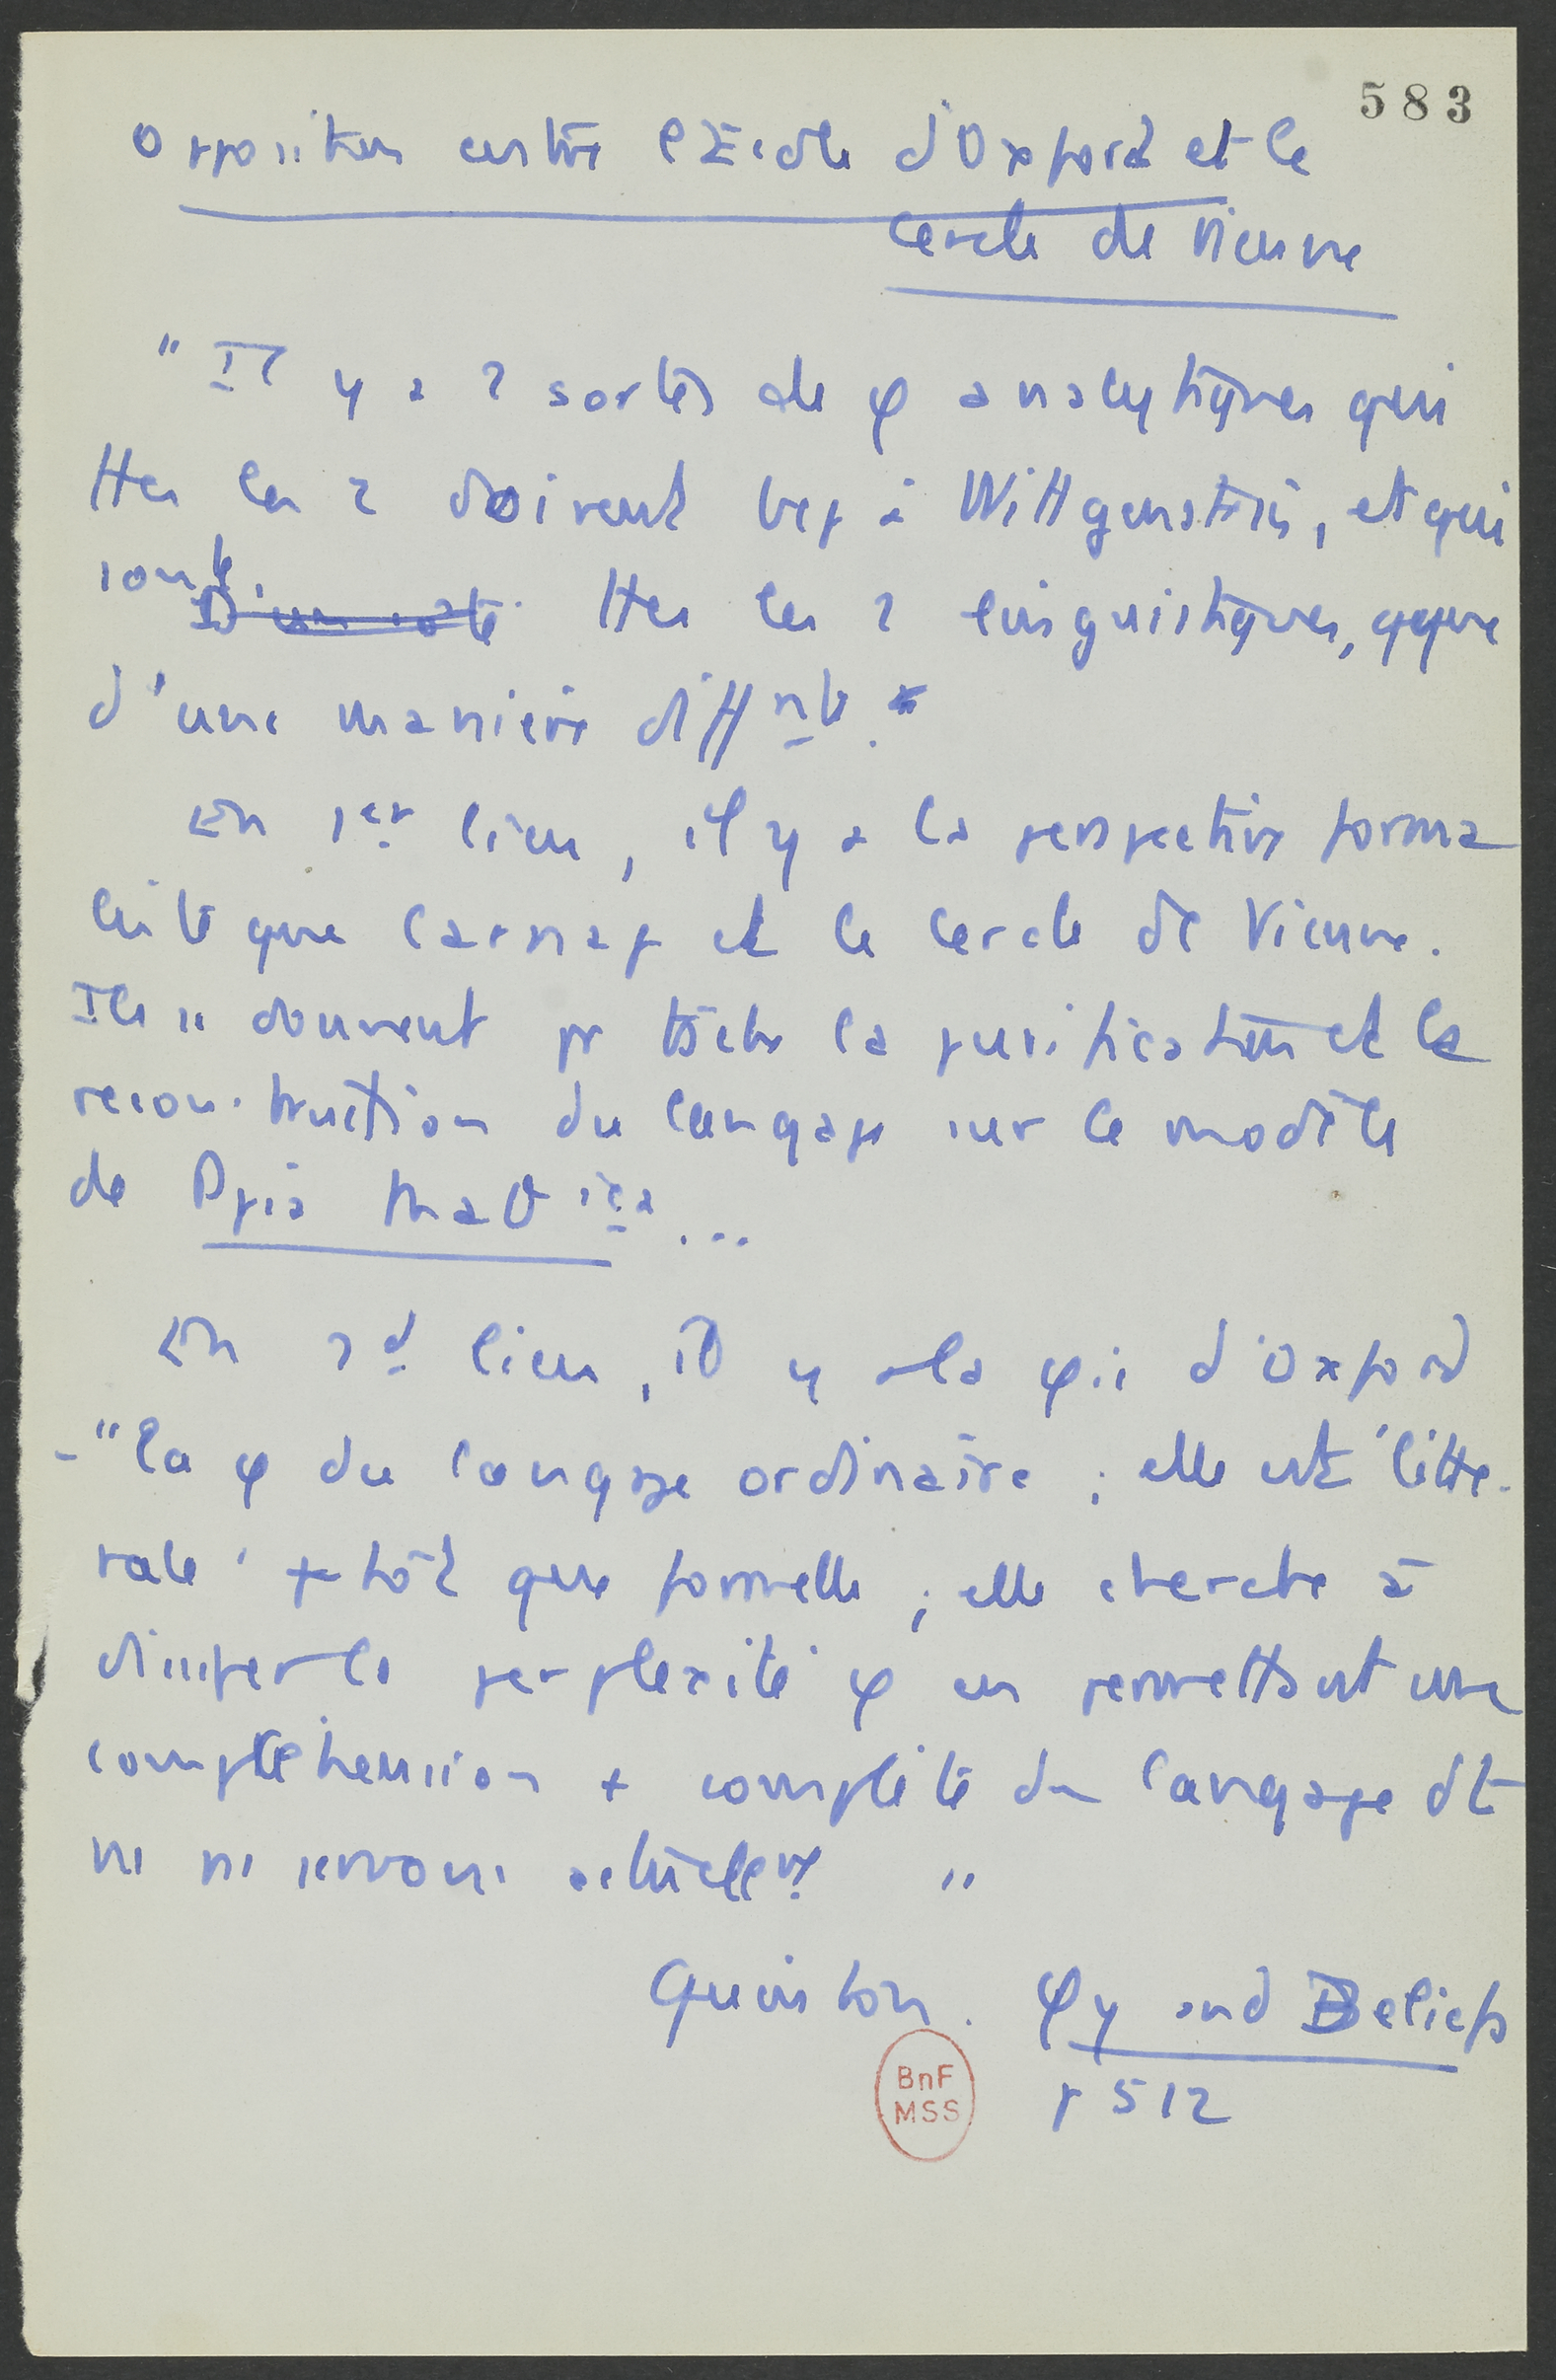 583
Opposition entre l'École d'Oxford et le
Cercle de Vienne
" Il y a 2 sortes de φ analytiques qui
ttes les 2 doivent bcp à Wittgenstein, et qui
sont D'un côté ttes les 2 linguistiques, qqque
d'une manière diffnte.
En 1er lieu, il y a la perspective forma
liste que Carnap et le Cercle de Vienne.
Ils se donnent pr tâche la purification et la
reconstruction du langage sur le modèle
de Ppia Mathica...
En 2d lieu, il y a la φie d'Oxford
- "la φ du langage ordinaire ; elle est 'litté-
rale' +tôt que formelle ; elle cherche à
dissiper la perplexité φ en permettant une
compréhension + complète du langage dt
ns ns servons actuellt "
Quinton. φy and Beliefs
p 512
BnF
MSS